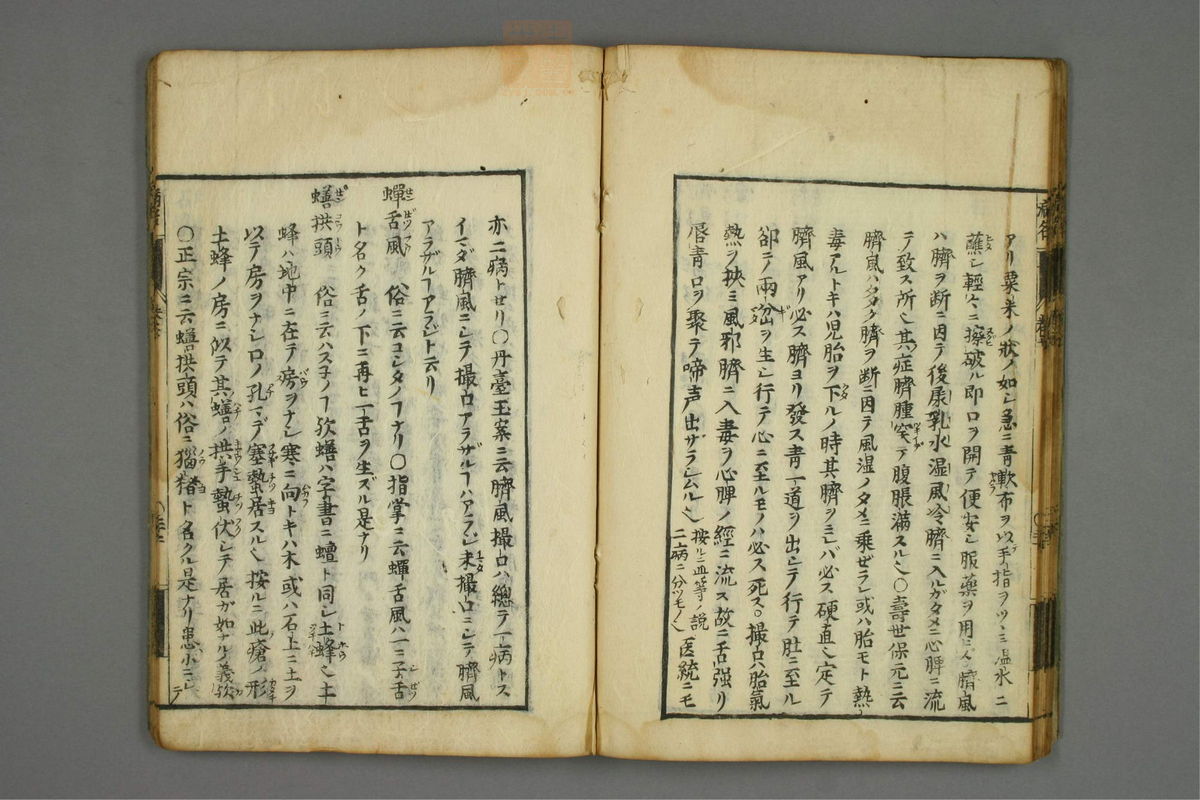 アリ粟米ノ状ノ如シ急ニ青軟布ヲ以手指ヲツヽミ温水ニ
蘸シ軽〻ニ擦破ル即口ヲ開テ便安シ服藥ヲ用ス臍風
ハ臍ヲ断ニ因テ後尿乳水湿風冷臍ニ入ルガタメニ心脾ニ流
テ致ス所也其症臍腫突テ腹脹満スル也○壽世保元ニ云
臍風ハ多ク臍ヲ断ニ因テ風湿ノタメニ乗ゼラレ或ハ胎モト熱
毒アルトキハ児胎ヲ下ルノ時其臍ヲミレバ必ス硬直也定テ
臍風アリ必ス臍ヨリ發ス青一道ヲ出シテ行テ肚ニ至ル
卻テ両岔ヲ生シ行テ心ニ至ルモノハ必ス死ス。撮口ハ胎氣
熱ヲ挾ミ風邪臍ニ入毒ヲ心脾ノ經ニ流ス故ニ舌強リ
唇青口ヲ聚テ啼声出ザラシムル也 按ルニ此等ノ説二病ニ分ツモノ也 医統ニモ
亦二病トせリ○丹臺玉案ニ云臍風撮口ハ總テ一病トス
イマダ臍風ニシテ撮口アラザルフハアラズ未撮口ニシテ臍風
アラザルフアラズト云リ
蟬舌風 俗ニ云コシタノフナリ○指掌ニ云蟬舌風ハ一ニ子舌
ト名ク舌ノ下ニ再ヒ一舌ヲ生ズル是ナリ
蟮拱頭 俗ニ云ハスネノフ欤蟮ハ字書ニ蟺ト同シ土蜂也土
蜂ハ地中ニ在テ房ヲナシ寒ニ向トキハ木或ハ石上ニ土ヲ
以テ房ヲナシ口ノ孔マデ塞蟄居スル也按ルニ此瘡ノ形
土蜂ノ房ニ似テ其蟮ノ拱手蟄伏シテ居ガ如ナル義欤
○正宗ニ云蟮拱頭ハ俗ニ猫猪ト名クル是ナリ患小ニシテ